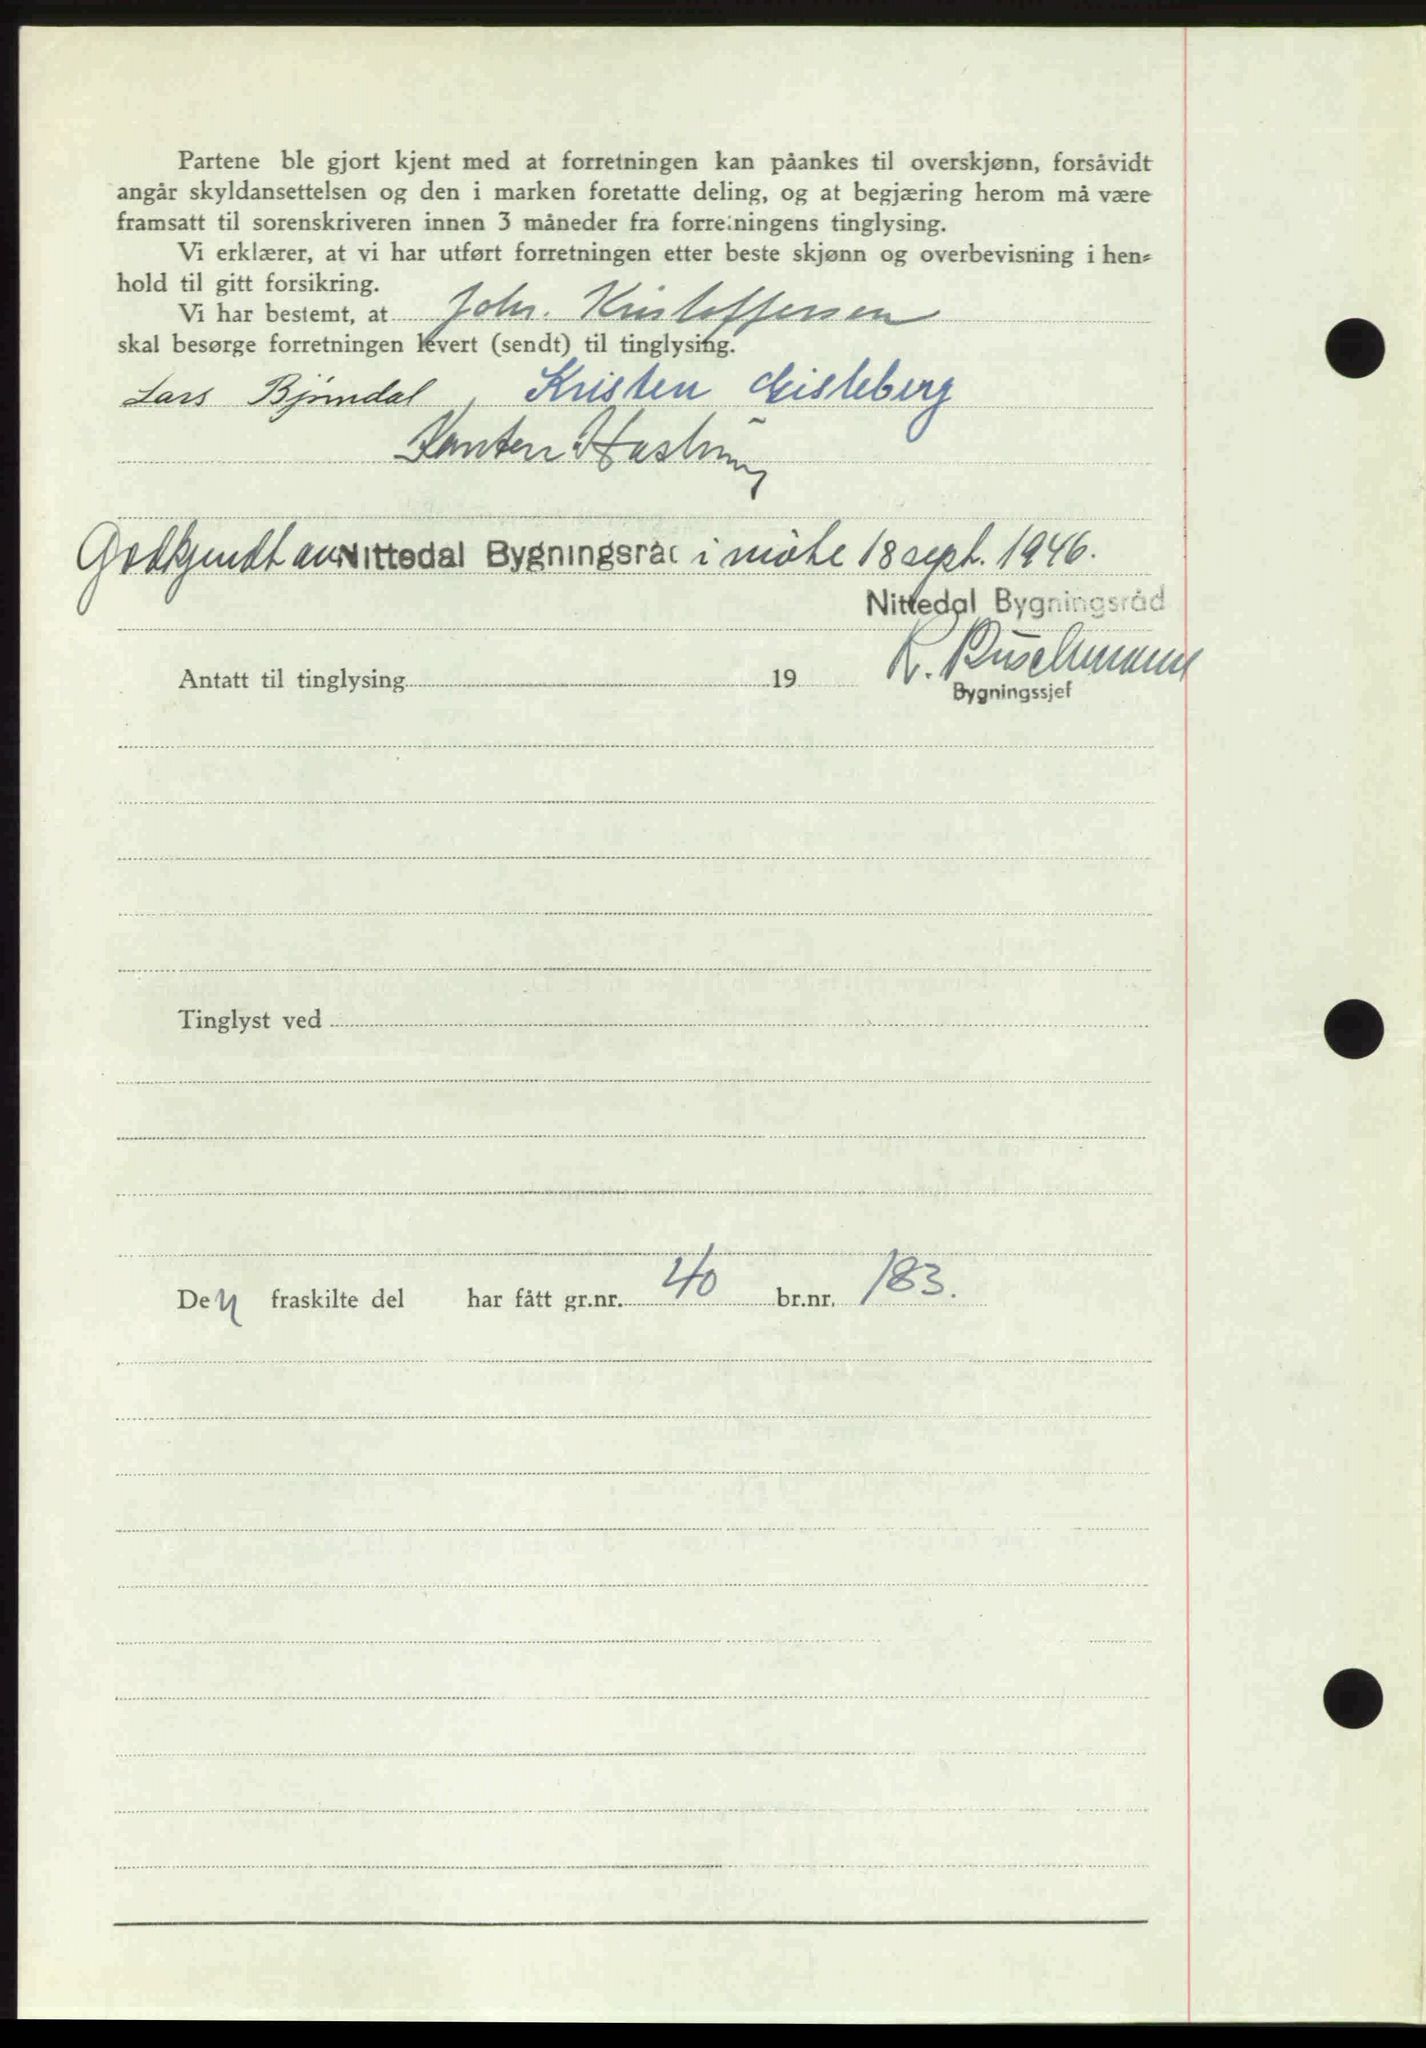 Partene ble gjort kjent med at forretningen kan påankes til overskjønn, forsåvidt
angår skyldansettelsen og den i marken foretatte deling, og at begjæring herom må være
framsatt til sorenskriveren innen 3 måneder fra forretningens tinglysing.
Vi erklærer, at vi har utført forretningen etter beste skjønn og overbevisning i hen-
hold til gitt forsikring.
Vi har bestemt, at Johs. Kristoffersen
skal besørge forretningen levert (sendt) til tinglysing.
Lars Bjørndal, Kristen Gisleberg
Karsten
Godkjendt av Nittedal Bygningsråd i møte 18 sept. 1946.
Nittedal Bygningsråd
R. Buschmann
Antatt til tinglysing 19
Bygningssjef
Tinglyst ved
Den fraskilte del har fått gr.nr. 40 br.nr. 183.